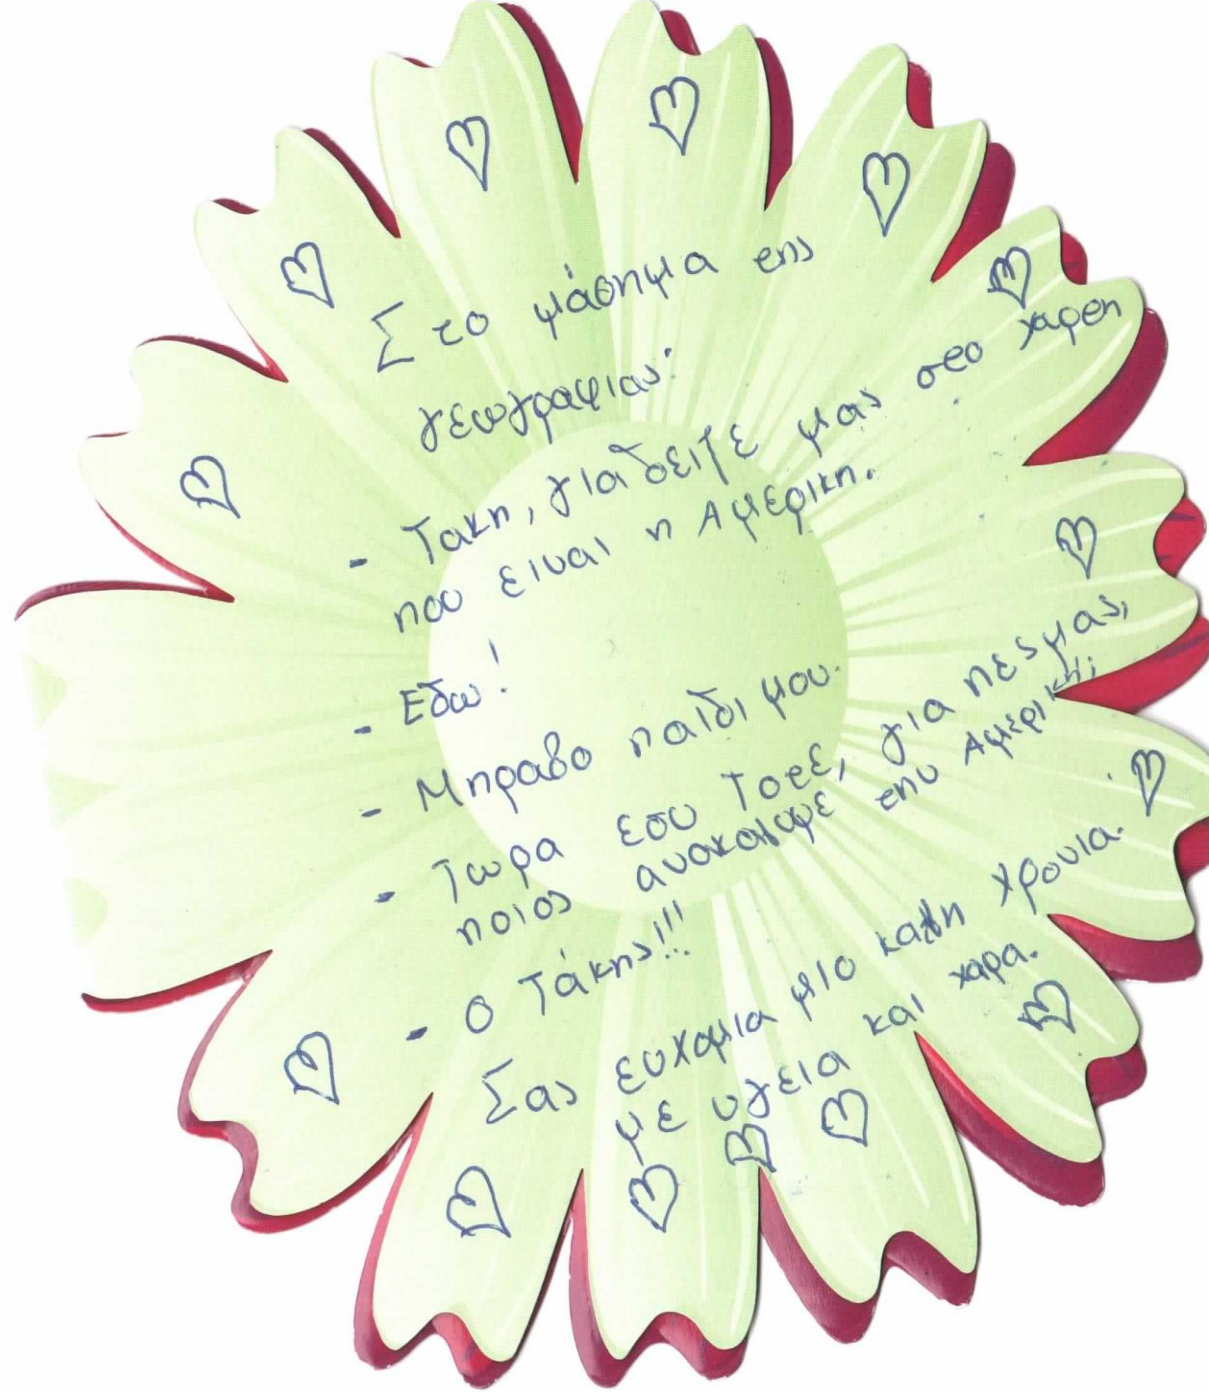 Στο μάθημα της
γεωγραφιας:
- Τακη, για δειξε μας στο χαρτη
που ειναι η Αμερικη.
- Εδω!
- Μπραβο παιδι μου.
- Τωρα εσυ Τοτε, για πες μας,
ποιος ανακαλυψε την Αμερικη;
- Ο Τάκης!!!
Σας ευχομια μιο καλη χρονια.
με υγεια και χαρα.